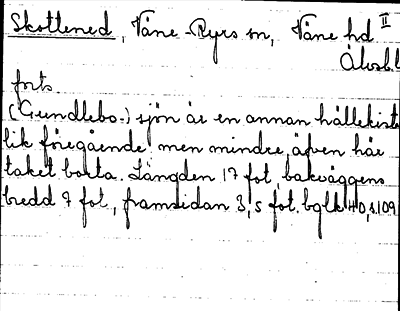 Skottened, Väne-Ryrs sn, Väne hd. II
Älvsb.l
forts.
(Gundlebo-) sjön är en annan hällekista
lik föregående men mindre, äfven här
taket borta. Längden 17 fot, bakväggens
bredd 7 fot, framsidan 3,5 fot. bglk 40, s. 109